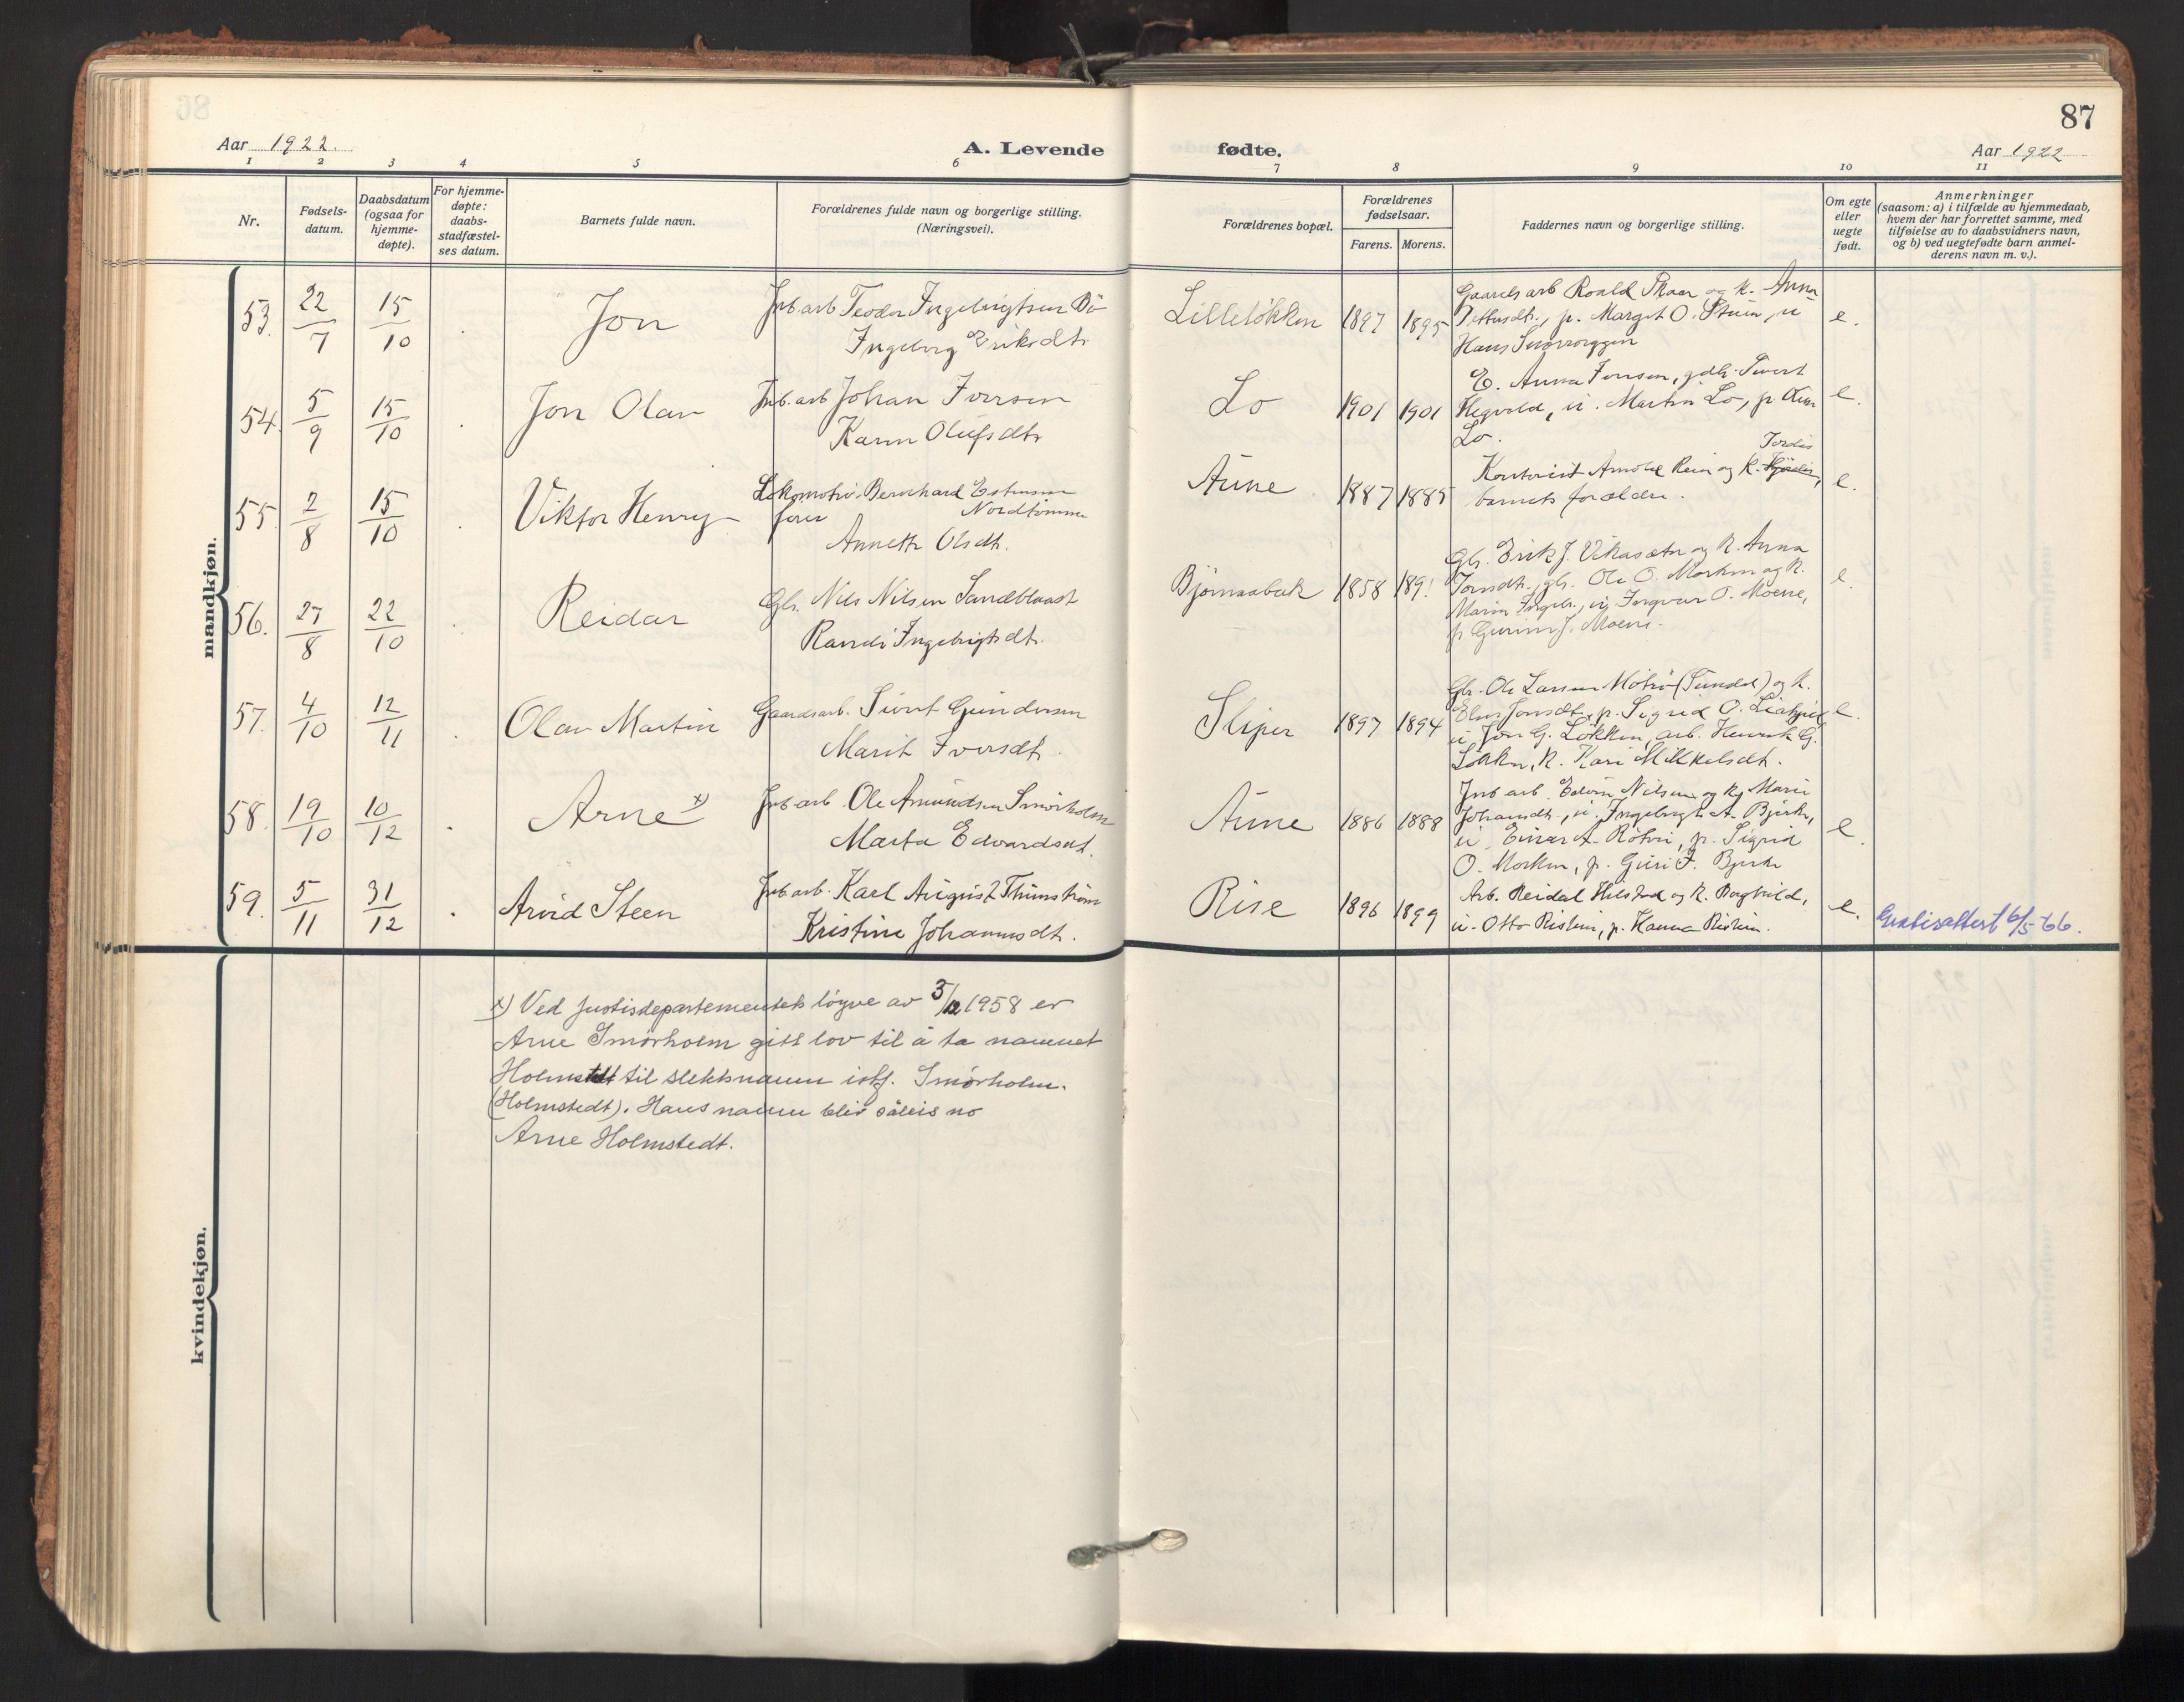 87
Aar 1922.
A. Levende
fødte.
Aar 1922
1 2 3 4 5 6 7 8 9 10 11
Nr.
Fødsels-
datum.
Daabsdatum
(ogsaa for
hjemme-
døpte).
For hjemme-
døpte:
daabs-
stadfæstel-
ses datum.
Barnets fulde navn.
Forældrenes fulde navn og borgerlige stilling.
(Næringsvei).
Forældrenes bopæl.
Forældrenes
fødselsaar.
Farens. Morens.
Faddernes navn og borgerlige stilling.
Om egte
eller
uegte
født.
Anmerkninger
(saasom: a) i tilfælde av hjemmedaab,
hvem der har forrettet samme, med
tilføielse av to daabsvidners navn,
og b) ved uegtefødte barn anmel-
derens navn m. v.).
mandkjøn.
53. 22/7 15/10 Jon
Jnb arb Teodor Ingebrigtsen Bö
Ingeborg Eriksdtr
Lilleløkken 1897 1895
Gaards arb Roald Skaar og k. Anna
p. Margit O. Stuen, u
Hans
e.
54. 5/9 15/10 Jon Olav
Jnb. arb Johan Iversen
Karen Olufsdtr
Lo 1901 1901
E. Anna Jonsen, gdbr. Sivert
Hegvold, u. Martin Lo, p
Lo.
e.
55. 2/8 15/10 Viktor Henry
Lokomotiv- Bernhard Estensen
fører Nordtømme
Anneth Olsdtr.
Aune 1887 1885
Jordis
Kontorist Arnold Rein og k. Hjördis,
barnets forældre.
e.
56. 27/8 22/10 Reidar
Gbr. Nils Nilsen Sandblaast
Randi Ingebrigtsdtr.
Bjørnaabæk 1858 189!
Gbr. Erik J. Vikasæter og k. Anna
Jonsdtr., gbr. Ole O. Morken og k.
Marie Ingebr., u Ingvar O. Moene,
p Guruen J. Moene.
e.
57. 4/10 12/11 Olav Martin
Gaardsarb. Sivert Gundersen
Marit Iversdtr.
Sliper 1897 1894
Gbr. Ole Larsen Motrö (Sundal) og k.
Jonsdtr., p. Sigrid O.
u Jon G. Løkken, arb. Henrik G.
Løkken, k. Kari Mikkelsdt.
e.
58. 19/10 10/12 Arne x)
Jnb arb Ole Amundsen Smørholm
Marta Edvardsdt.
Aune 1886 1888
Jnb arb. Edvin Nilsen og k Marie
Johansdt., u. Ingebrigt A. Bjerke,
u Einar A. p. Sigrid
O. Morken, p. Guri F. Bjerke
e.
59. 5/11 31/12 Arvid Steen
Jnb arb. Karl August Thunstrøm
Kristine Johannesdt.
Rise 1896 1899
Arb. Reidal Hilstad og k. Borghild,
u. Otto Rislien, p. Hanna Rislien.
e.
Gratisattest 6/5-66.
kvindekjøn.
x) Ved Justisdepartementets løyve av 3/12 1958 er
Arne Smørholm gitt lov til å ta namnet
Holmstedt til slektsnamn istf. Smørholm.
(Holmstedt). Hans namn blir såleis no
Arne Holmstedt.